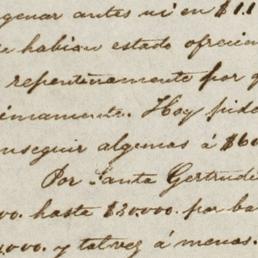 genar antes ni en $1.1
habian estado ofrecien
repentinamente por q
imamente. Hoy pide
onseguir algunas á $60
Por Santa Gertrude
00. hasta $30.000. por ba
0,000. y tal vez á menos.